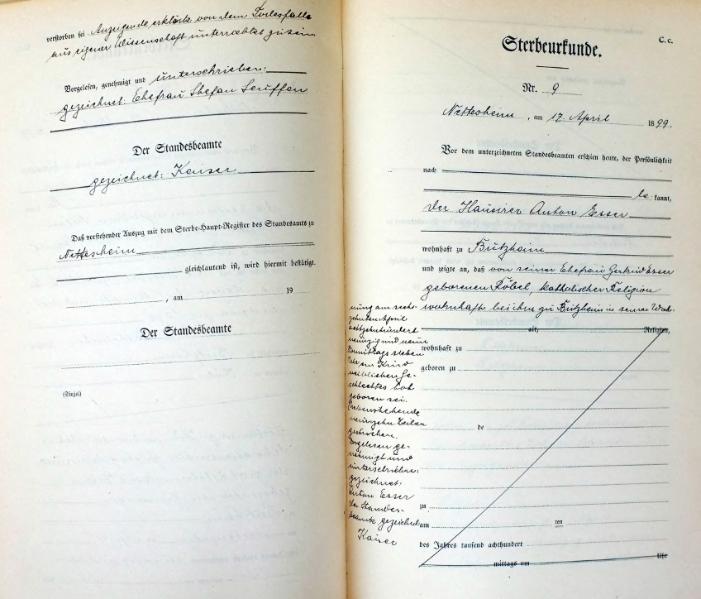 verstorben sei. Anzeigende erklärte von dem Todesfalle
aus eigener Wissenschaft unterrichtet zu sein
Vorgelesen, genehmigt und unterschrieben:
gezeichnet: Ehefrau Stefan
Der Standesbeamte
gezeichnet: Kaiser
Daß vorstehender Auszug mit dem Sterbe-Haupt-Register des Standesamts zu
Nettesheim
gleichlautend ist, wird hiermit bestätigt.
, am 19
Der Standesbeamte
(Einzel)
C. c.
Sterbeurkunde.
Nr. 9
Nettesheim, am 17. April 1899.
Vor dem unterzeichneten Standesbeamten erschien heute, der Persönlichkeit
nach
be kannt,
der Hausirer Anton Esser
wohnhaft zu Butzheim
und zeigte an, daß von seiner Ehefrau Gertrud Esser
geborenen Köbel, katholischer Religion
wohnhaft bei ihm zu Butzheim in seiner Woh-
nung am sech-
zehnten April
achtzehnhundert
neunzig und neun
Vormittags sieben
Uhr ein Kind
weiblichen Ge-
schlechtes tot
geboren sei.
Vorstehende
neunzehn Zeilen
gestrichen.
Vorgelesen ge-
nehmigt und
unterschrieben
gezeichnet:
Anton Esser
der Standes-
beamte gezeichnet
Kaiser
alt, Religion,
wohnhaft zu
geboren zu
de
zu
am ten
des Jahres tausend achthundert
mittags um Uhr